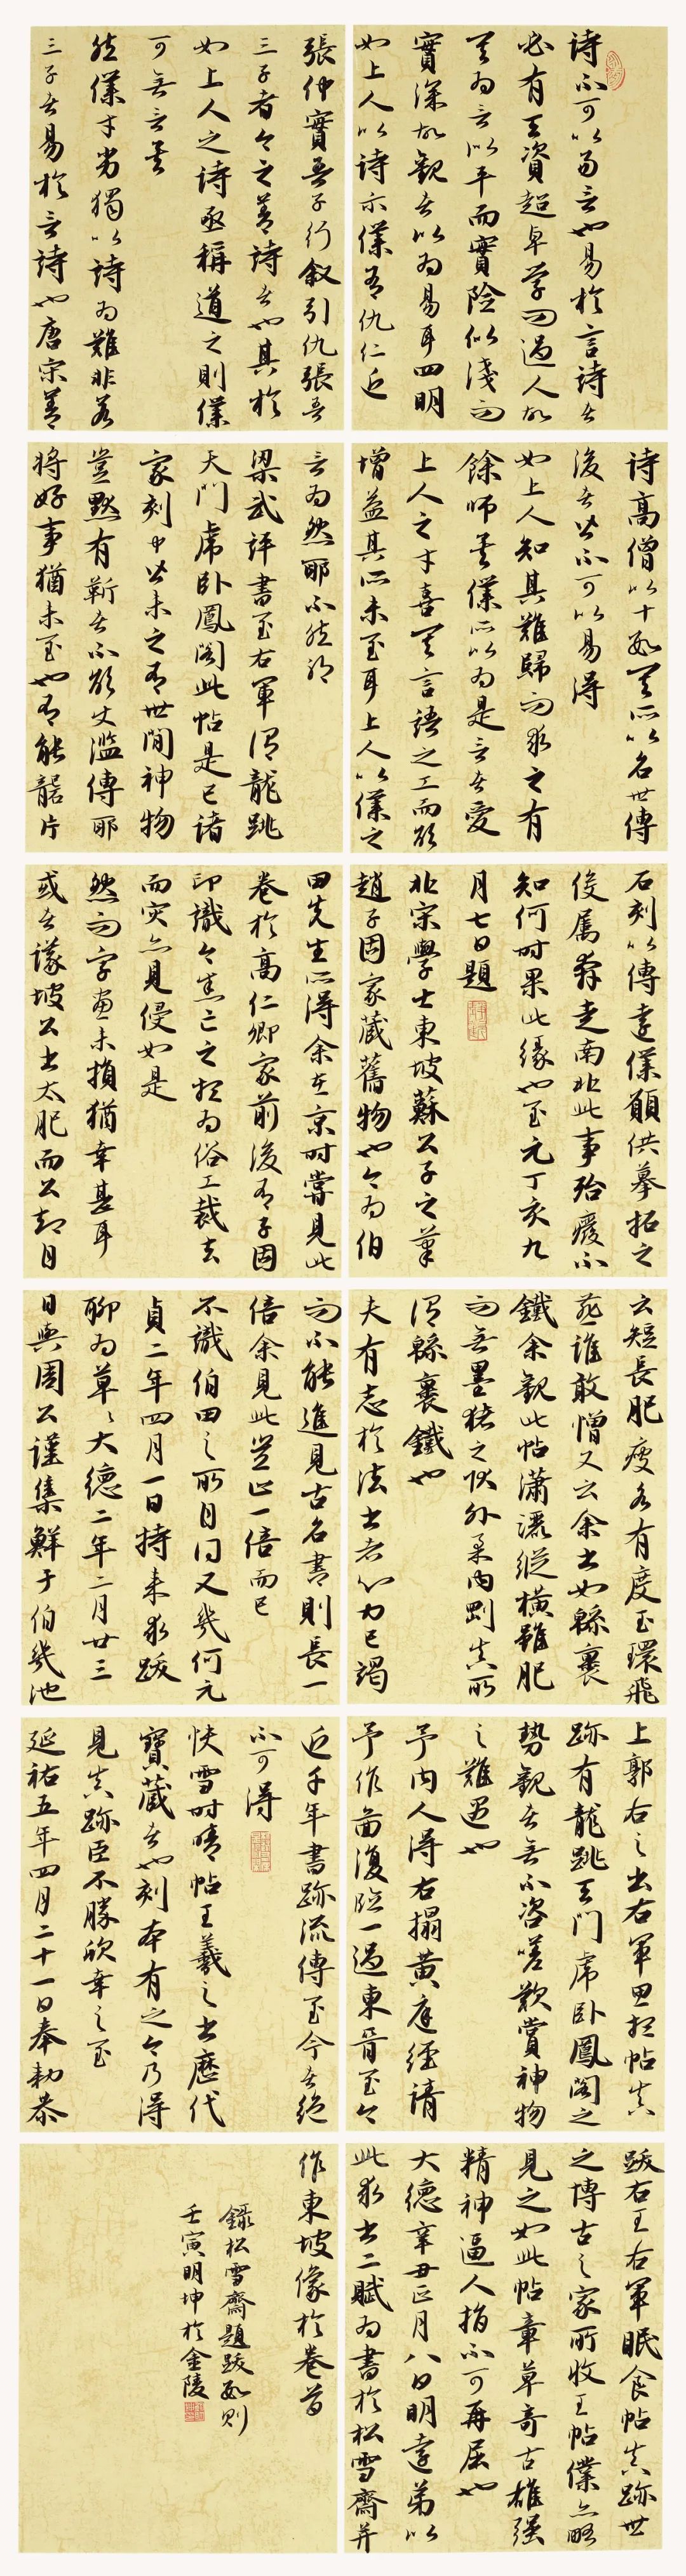 詩不可以易言也易於言詩者
必有天資超卓學問過人故
其為言以平而實險似淺而
實深故觀者以為易耳四明
如上人以詩示僕有仇仁近
張仲實吾子行叙引仇張吾
三子者今之善詩者也其於
如上人之詩亟稱道之則僕
可無言矣
然僕才劣獨以詩為難非若
三子者易於言詩也唐宋善
詩高僧以十數其所以名世傳
後者皆不可以易得
如上人知其難歸而求之有
餘師矣僕所以為是言者愛
上人之才喜其言語之工而欲
增益其所未至耳上人以僕之
言為然耶不然耶
梁武評書至右軍謂龍跳
天門虎卧鳳閣此帖是已諸
家刻中皆未之有世間神物
豈默有靳者不欲丈濫傳耶
將好事猶未至也有能誾片
石刻以傳遠僕願供摹拓之
役属奔走南北此事殆癈不
知何时果此緣也至元丁亥九
月七日題
北宋學士東坡蘇公子之筆
趙子固家藏舊物也今為伯
田先生所得余在京时嘗見此
卷於高仁卿家前後有子固
印識今焦亡之想為俗工裁去
而灾亦見侵如是
然而字畫未損猶幸甚耳
或者議坡公書太肥而公却自
云短長肥瘦各有度玉環飛
燕誰敢憎又云余書如緜裹
鐵余觀此帖瀟灑縱橫雖肥
而無墨猪之狀外柔内剛真所
謂緜裹鐵也
夫有志於法書者心力已竭
而不能進見古名書則長一
倍余見此豈止一倍而已
不識伯田之所自同又幾何元
貞二年四月一日持来求跋
聊為草草大德二年二月廿三
日與周公謹集鮮于伯幾池
上郭右之出右軍思想帖真
跡有龍跳天門虎卧鳳閣之
勢觀者無不咨嗟歎賞神物
之難遇也
予内人得右搨黄庭經請
予作面復臨一過東胥至今
近千年書跡流傳至今者絕
不可得
快雪时晴帖王羲之書歷代
寶藏者也刻本有之今乃得
見真跡臣不勝欣幸之至
延祐五年四月二十一日奉勑恭
跋右王右軍眠食帖真跡世
之博古之家所收王帖僕亦略
見之如此帖章草奇古雄强
精神逼人指不可再屈也
大德辛丑正月八日明遠弟以
此求書二賦為書於松雪齋并
作東坡像於卷首
錄松雪齋題跋數則
壬寅明坤於金陵